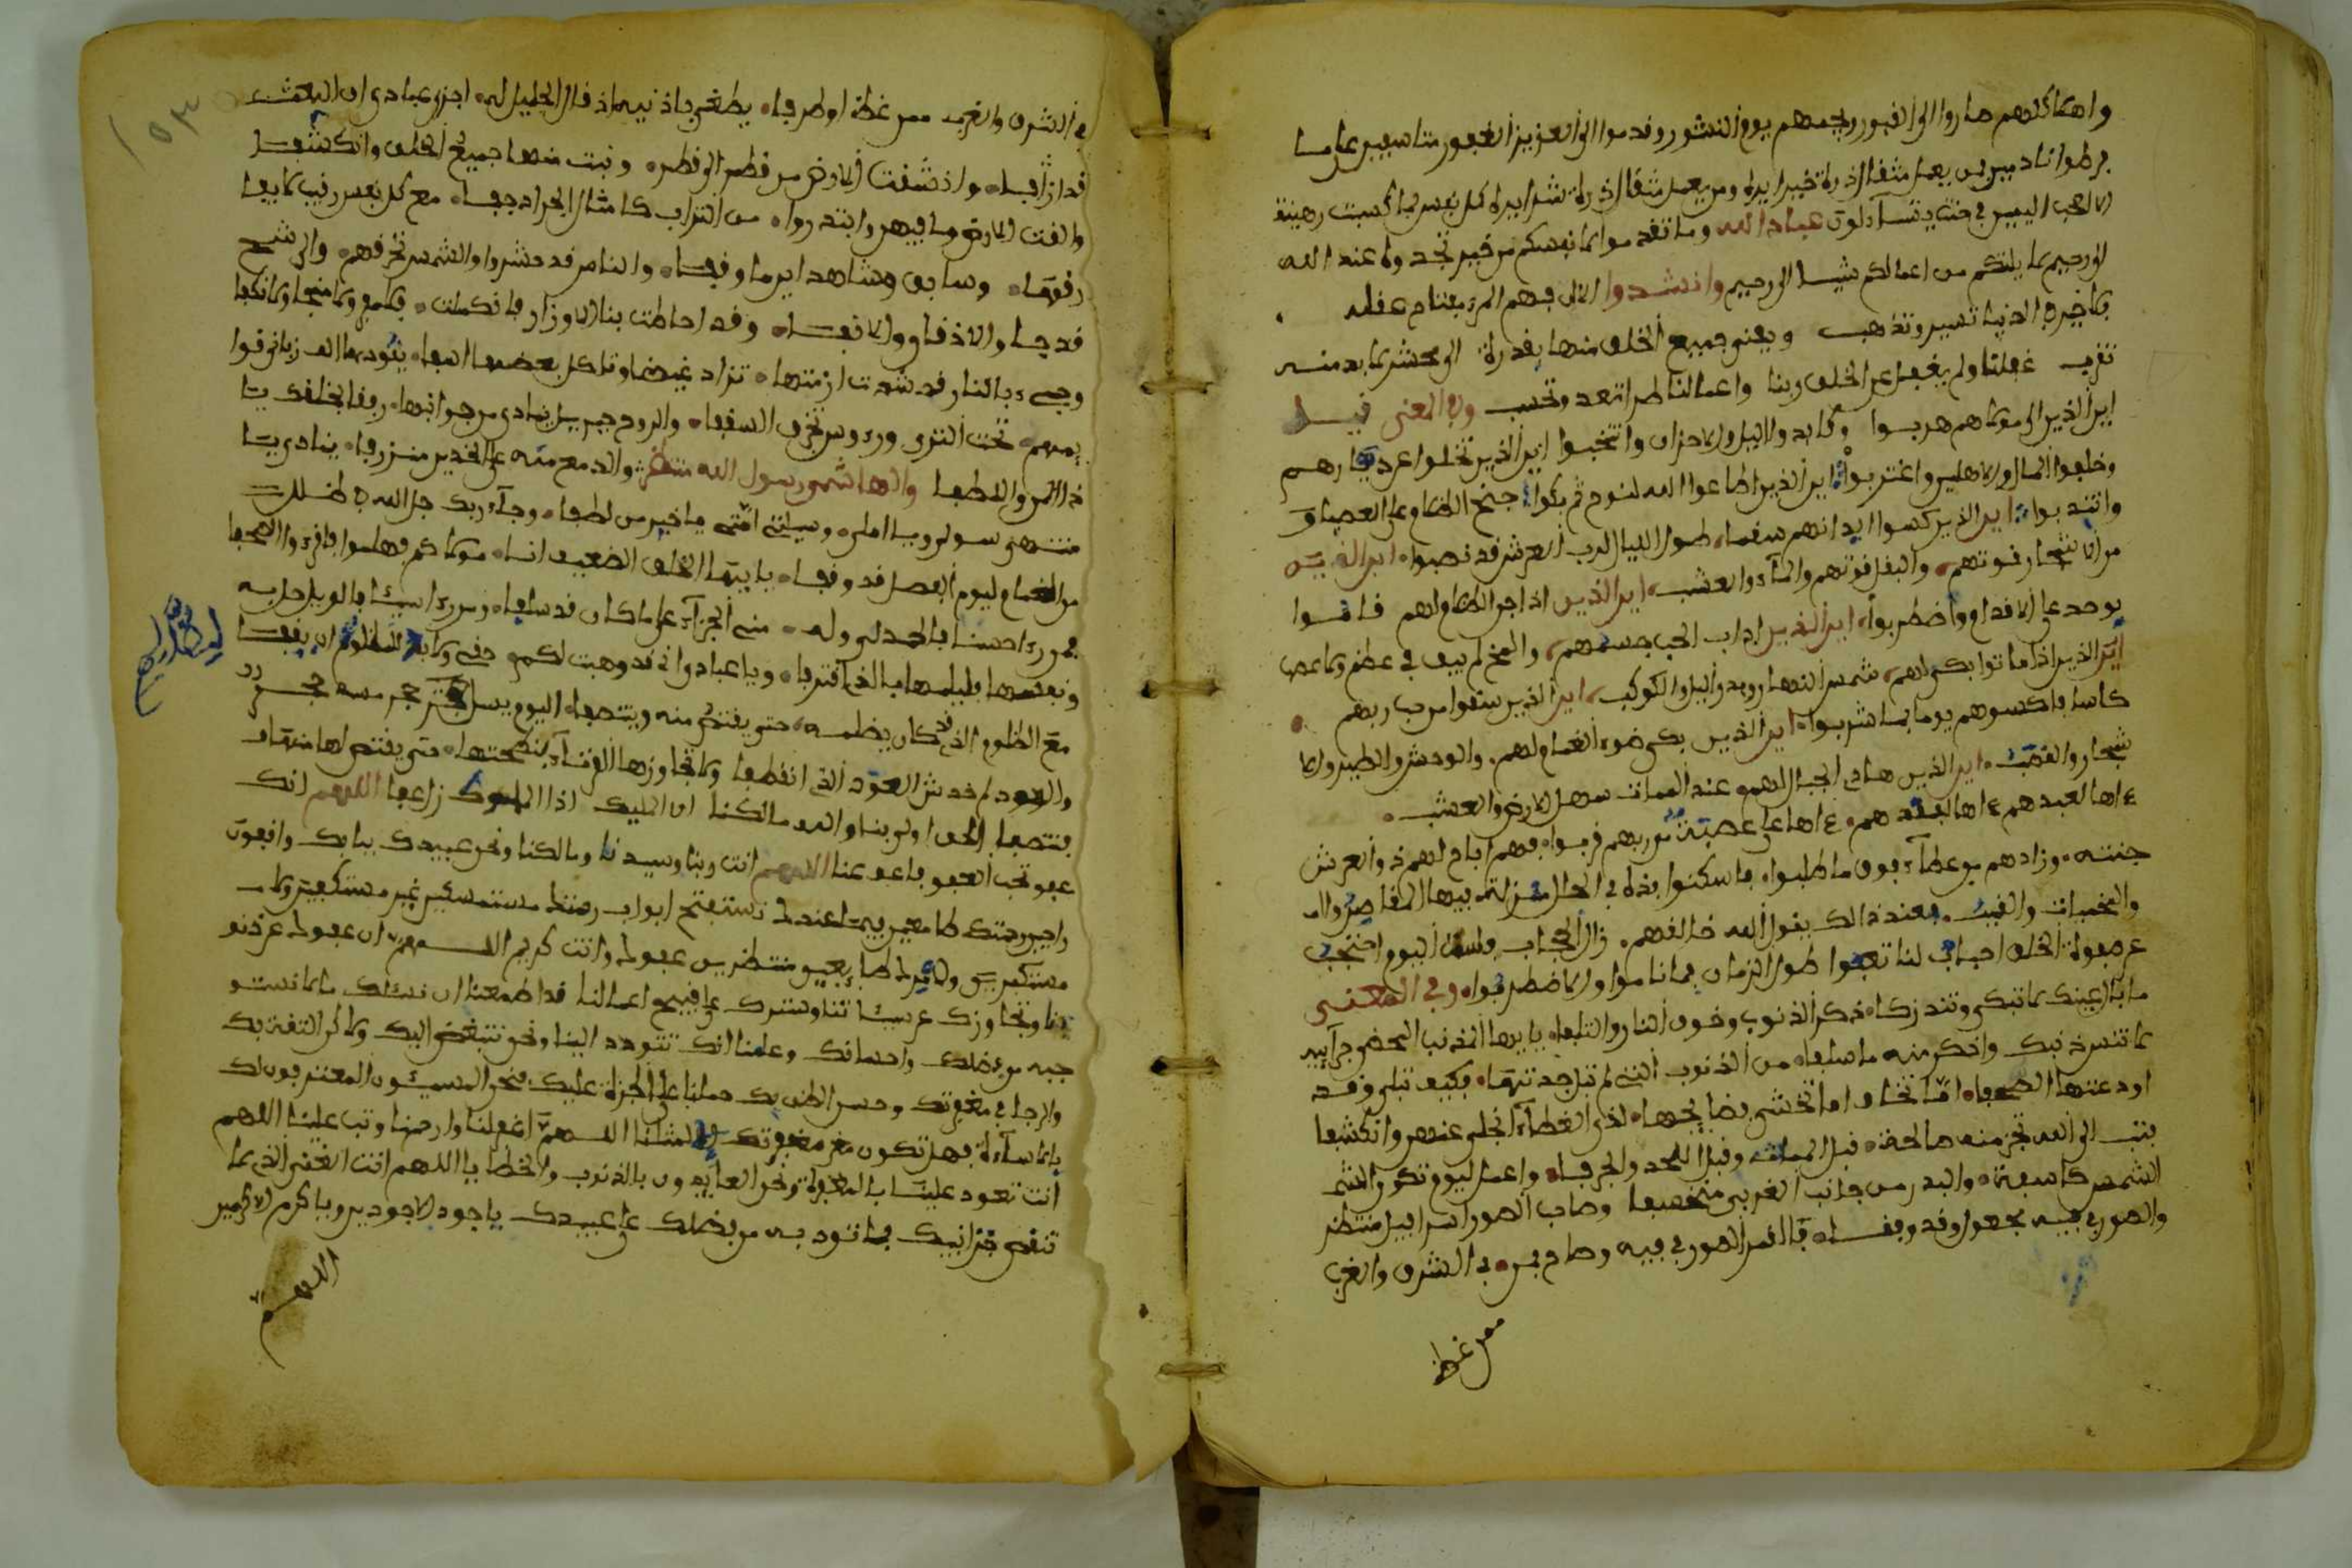 واهما كلهم صاروا الى القبور ويجمعهم يوم النشور وقدموا الى العزيز الغفور متأسفين على ما
فرطوا نادمين فمن يعمل مثقال ذرة خيرا يره ومن يعمل مثقال ذرة شرا يره كل نفس بما كسبت رهينة
الا اصحاب اليمين في جنت يتساءلون عباد الله وما تقدموا لانفسكم من خير تجدوه عند الله
لا يلتكم من اعمالكم شيئا ان الله غفور رحيم وانشدوا
الدنيا تسير وتذهب ويفنى جميع الخلق منها بقدرة الى محشر لا بد منه
نقرب غفلنا ولم يغفل عن الخلق ربنا واعمالنا طرا تعد وتحسب وفي المعنى
اين الذين الى مولاهم هربوا وكابدوا الليل والاحزان وانتحبوا اين الذين تخلوا عن ديارهم
وخلفوا المال والاهلين واغتربوا اين الذين اطاعوا الله جنح الظلام على العصيان
وانتدبوا اين الذين كسوا ابدانهم سقما طول الليالي لرب العرش قد نصبوا اين الذين
من الاشجار قوتهم والبقل قوتهم والماء والعشب اين الذين اذا جن الظلام لهم قاموا
على الاقدام واضطربوا اين الذين اذاب الحب جسمهم والمخ لم يبق في عظم ولا عصب
اين الذين اذا ماتوا بكى لهم شمس النهار وبدر الليل والكوكب اين الذين سقوا من حب ربهم
كاسا فاكسوهم يوما بما شربوا اين الذين بكى ضوء الغمام لهم والوحش والطير والا
شجار والقضب اين الذين الجبال لهم عند الممات سهل الارض والعشب
اها لبعدهم اها لفقدهم اها على عصبة من ربهم قربوا فهم اباح لهم ذو العرش
جنته وزادهم من عطاء فوق ما طلبوا فاسكنوا
والخيمات والقبب فعند ذالك يقول الله خالقهم زال الحجاب ولست اليوم احتجب
عن صفوة الخلق احباب لنا تعبوا طول الزمان فما ناموا ولا اضطربوا وفي المعنى
ما بال عينك لا تبكي وتندرفا ذكر الذنوب وخوف النار والتلفا يا ايها المذنب المحصي جرائمه
لا تنس ذنبك واذكر منه ما سلفا من الذنوب التي لم تبل جدتها وكيف تبلى وقد
اودعتها الصحفا اما تخاف اما تخشى فضائحها اذا الغطاء انجلى عنهن وانكشفا
فتب الى الله تجز منه صالحة قبل الممات وقبل اللحد والجرفا واعمل ليوم تكون الشمس
الشمس كاسفة والبدر من جانب الغربي منخسفا وصاحب الصور اسرافيل منتظر
والصور في فيه محمول وقد وقفا فالقم الصور في فيه وصاح بمن في الشرق والغرب
ممن غطا
في الشرق والغرب ممن غطه او طرفا يطغى باذنيه اذ قال الجليل له اجزى عبادى ان البعث
قد ازفا واذ شقت الارض من قطر الى قطر وبث منها جميع الخلق وانكشفا
والقت الارض ما فيهن وابتدروا من التراب كامثال الجراد جفا مع كل نفس رقيب لا يفا
رقها وسائق وشاهد اين ما وقفا والناس قد حشروا والشمس تحرقهم والرشح
قد جا والاذقان والانفا وقد احاطت بنا الاوزار فاكملت
وجيء بالنار قد شدت ازمتها تزاد غيضا وتاكل بعضها اسفا يقودها الف زبانى قوا
يمهم تحت الثرى ورءوس تخرق السقفا والروح جبريل ينادى من جوانبها رفقا بخلقك يا
ذا المن واللطفا والهاشمي رسول الله منتظر والدمع منه على الخدين منزرفا ينادى يا
منتهى سولي ويا املي وسيلتي امتي يا خير من لطفا وجاء ربك جل الله في ظلل
من الغمام ليوم الفصل قد وقفا يا ايها الخلق الضعيف انا مولاكم فهلموا فاقرءوا الصحفا
من رءا حسنا فالحمد لي وله مني الجزاء على ما كان قد سلفا ومن رءا سيئا فالويل حل به
ونفسه فليلمها بالذي اقترفا ويا عبادى اني قد وهبت لكم حقي ولابد للمظلوم ان يقفا
مع الظلوم الذى قد كان يظلمه حتى يقتص منه وينتصفا اليوم يسل حجر مسه حجر
والعود لم خدش العود الذى انقطفا ولا تجاوزها القرناء بنطحتها حتى يقتص لها
فننتصفا الحق اولى بنا والله مالكنا ان المليك اذا المملوك زل عفا اللهم انك
عفو تحب العفو فاعف عنا اللهم انت ربنا وسيدنا ومالكنا ونحن عبيدك ببابك واقفون
راجين رحمتك طامعين فيما عندك نستفتح ابواب رحمتك مستمسكين غير مستكفين ولا
مستكبرين منتظرين عفوك وانت كريم اللهم ان عفوك عن ذنو
بنا وتجاوزك عن سيئاتنا وسترك على قبيح اعمالنا قد اطمعنا ان نسئلك ما لا نستو
جبه من فضلك واحسانك وعلمنا انك تتودد الينا ونحن نتبغض اليك ولا كن الثقة بك
والرجا في مغفرتك وحسن الظن بك حملنا على الجرءة عليك فنحن المسيئون المعترفون لك
بالاساءة فهل تكون مغفرتك الا لمثلنا اللهم اغفر لنا وارحمنا وتب علينا اللهم
انت تعود علينا بالمغفرة ونحن العايدون بالذنوب والخطايا اللهم انت الغني الذى لا
تنقص خزائنك بما تجود به من فضلك على عبيدك يا جود الاجودين ويا كرم الاكرمين
اللهم